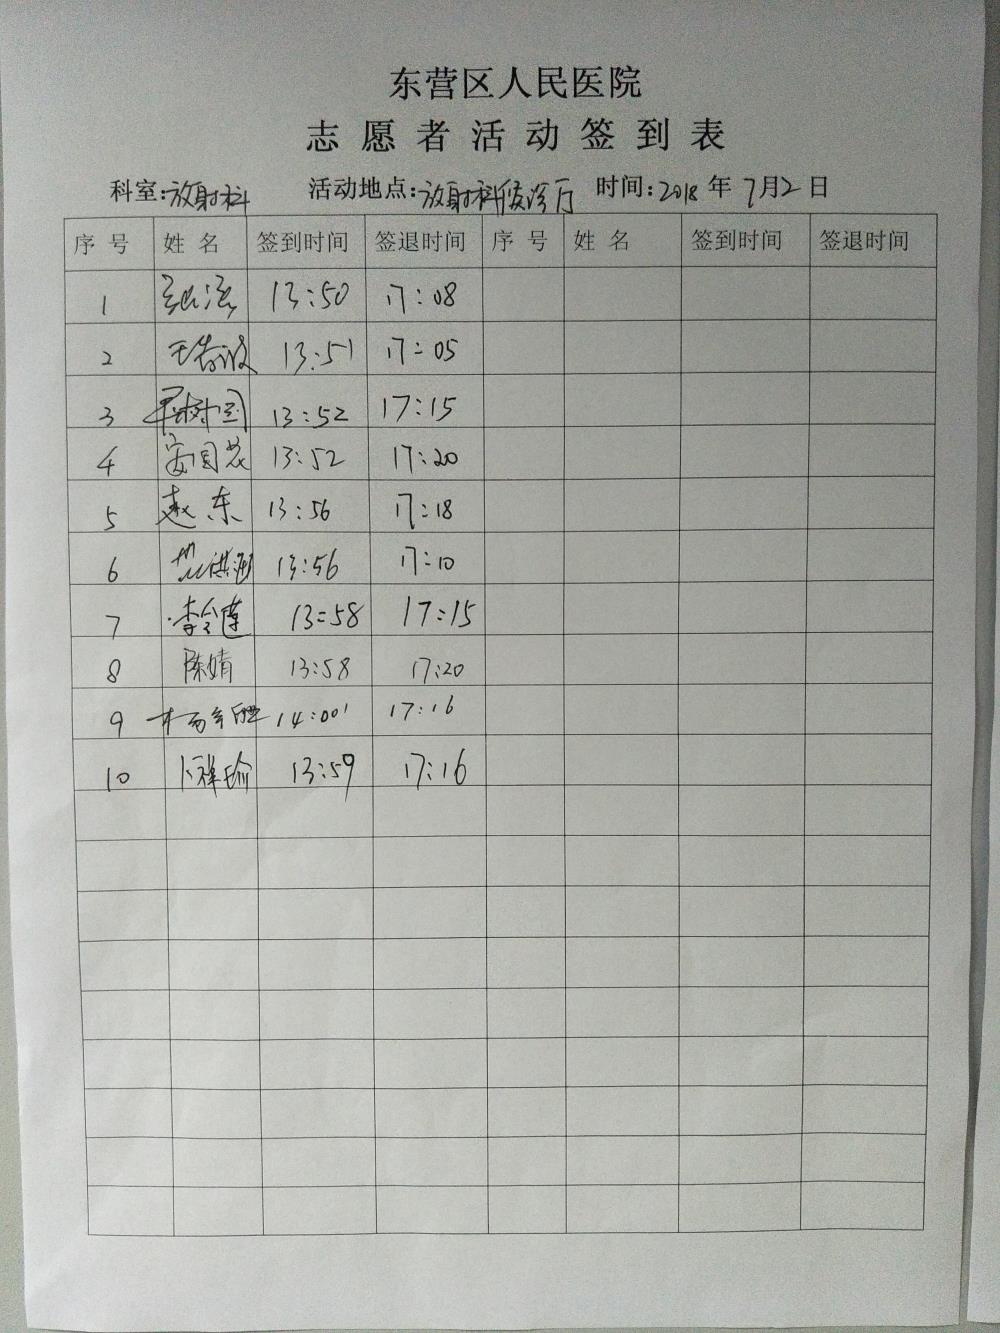 东营区人民医院
志愿者活动签到表
科室:放射科 活动地点:放射科候诊厅 时间:2018年7月2日
序号 姓名 签到时间 签退时间 序号 姓名 签到时间 签退时间
1 13:50 17:08
2 13:51 17:05
3 13:52 17:15
4 13:52 17:20
5 赵东 13:56 17:18
6 13:56 17:10
7 李令莲 13:58 17:15
8 陈婧 13:58 17:20
9 14:00 17:16
10 卜祥瑜 13:59 17:16